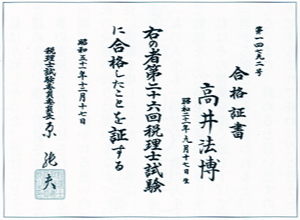 第一四七九二号
合格証書
高井法博
昭和二十二年九月十七日生
右の者第二十六回税理士試験
に合格したことを証する
昭和五十一年十二月十七日
税理士試験委員委員長 原 純夫